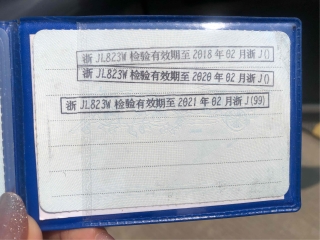 浙 JL823W 检验有效期至 2018 年 02 月浙 J()
浙 JL823W 检验有效期至 2020 年 02 月浙 J()
浙 JL823W 检验有效期至 2021 年 02 月浙 J(99)